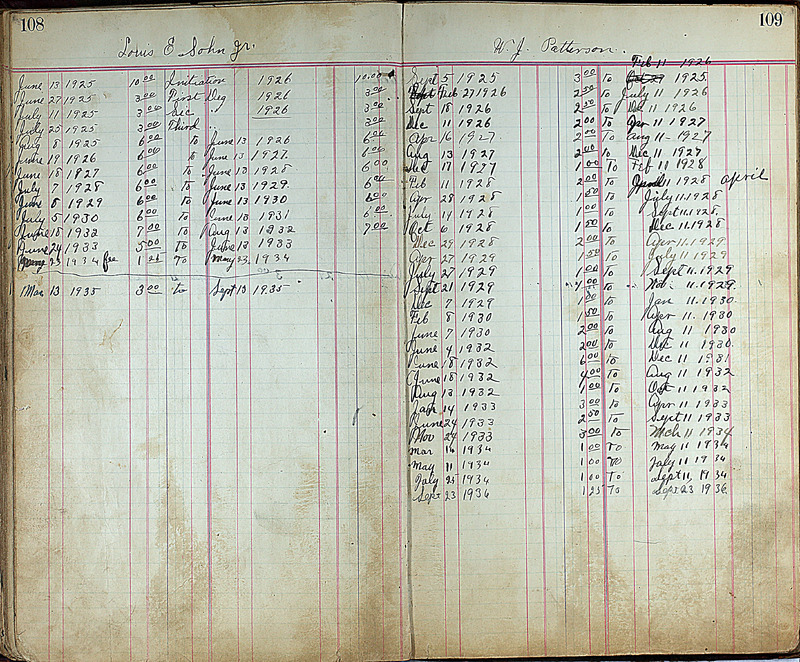 108
Louis E Sohn Jr.
June 13 1925 10.00 Initiation 1926 10.00
June 27 1925 3.00 First Deg 1926 3.00
July 11 1925 3.00 Sec " 1926 3.00
July 25 1925 3.00 Third 3.00
Aug 8 1925 6.00 to June 13 1926 6.00
June 19 1926 6.00 to June 13 1927 6.00
June 18 1927 6.00 To June 13 1928 6.00
July 7 1928 6.00 to June 13 1929 6.00
June 8 1929 6.00 to June 13 1930 6.00
July 5 1930 6.00 To June 13 1931 6.00
June 18 1932 7.00 to Aug 13 1932 7.00
June 24 1933 5.00 to June 13 1933
23 1934 fee 1.25 To May 23, 1934
Mar 13 1935 3.00 to Sept 13 1935
109
W. J. Patterson.
Feb 11 1926
Sept 5 1925 3.00 To 1925
Feb 27 1926 2.50 To July 11 1926
Sept 18 1926 2.50 To 11 1926
Dec 11 1926 2.00 To Apr 11 1927
Apr 16 1927 2.00 To Aug 11-1927
Aug 13 1927 2.00 to Dec 11 1927
Dec 17 1927 1.00 To Feb 11 1928
Feb 11 1928 2.00 To 11 1928 April
Apr 28 1928 1.50 To July 11.1928
July 14 1928 1.00 To Sept 11.1928.
Oct 6 1928 1.50 To Dec 11.1928
Dec 29 1928 2.00 To Apr 11.1929
Apr 27 1929 1.50 To July 11 1929
July 27 1929 1.00 To Sept 11.1929
Sept 21 1929 To Nov. 11.1929
Dec 7 1929 1.00 To Jan 11.1930
Feb 8 1930 1.50 To Apr 11. 1930
June 7 1930 2.00 To Aug 11 1930
June 4 1932 2.00 To Oct 11 1930.
June 18 1932 6.00 to Dec 11 1931
June 18 1932 4.00 To Aug 11 1932
Aug 13 1932 1.00 To Oct 11 1932
Jan 14 1933 3.00 to Apr 11 1933
June 24 1933 2.50 To Sept 11 1933
Nov 24 1933 3.00 To Mch 11 1934
Mar 16 1934 1.00 To May 11 1934
May 11 1934 1.00 To July 11 1934
July 25 1934 1.00 To Sept 11, 1934
Sept 23 1936 1.25 To Sept 23 1936.